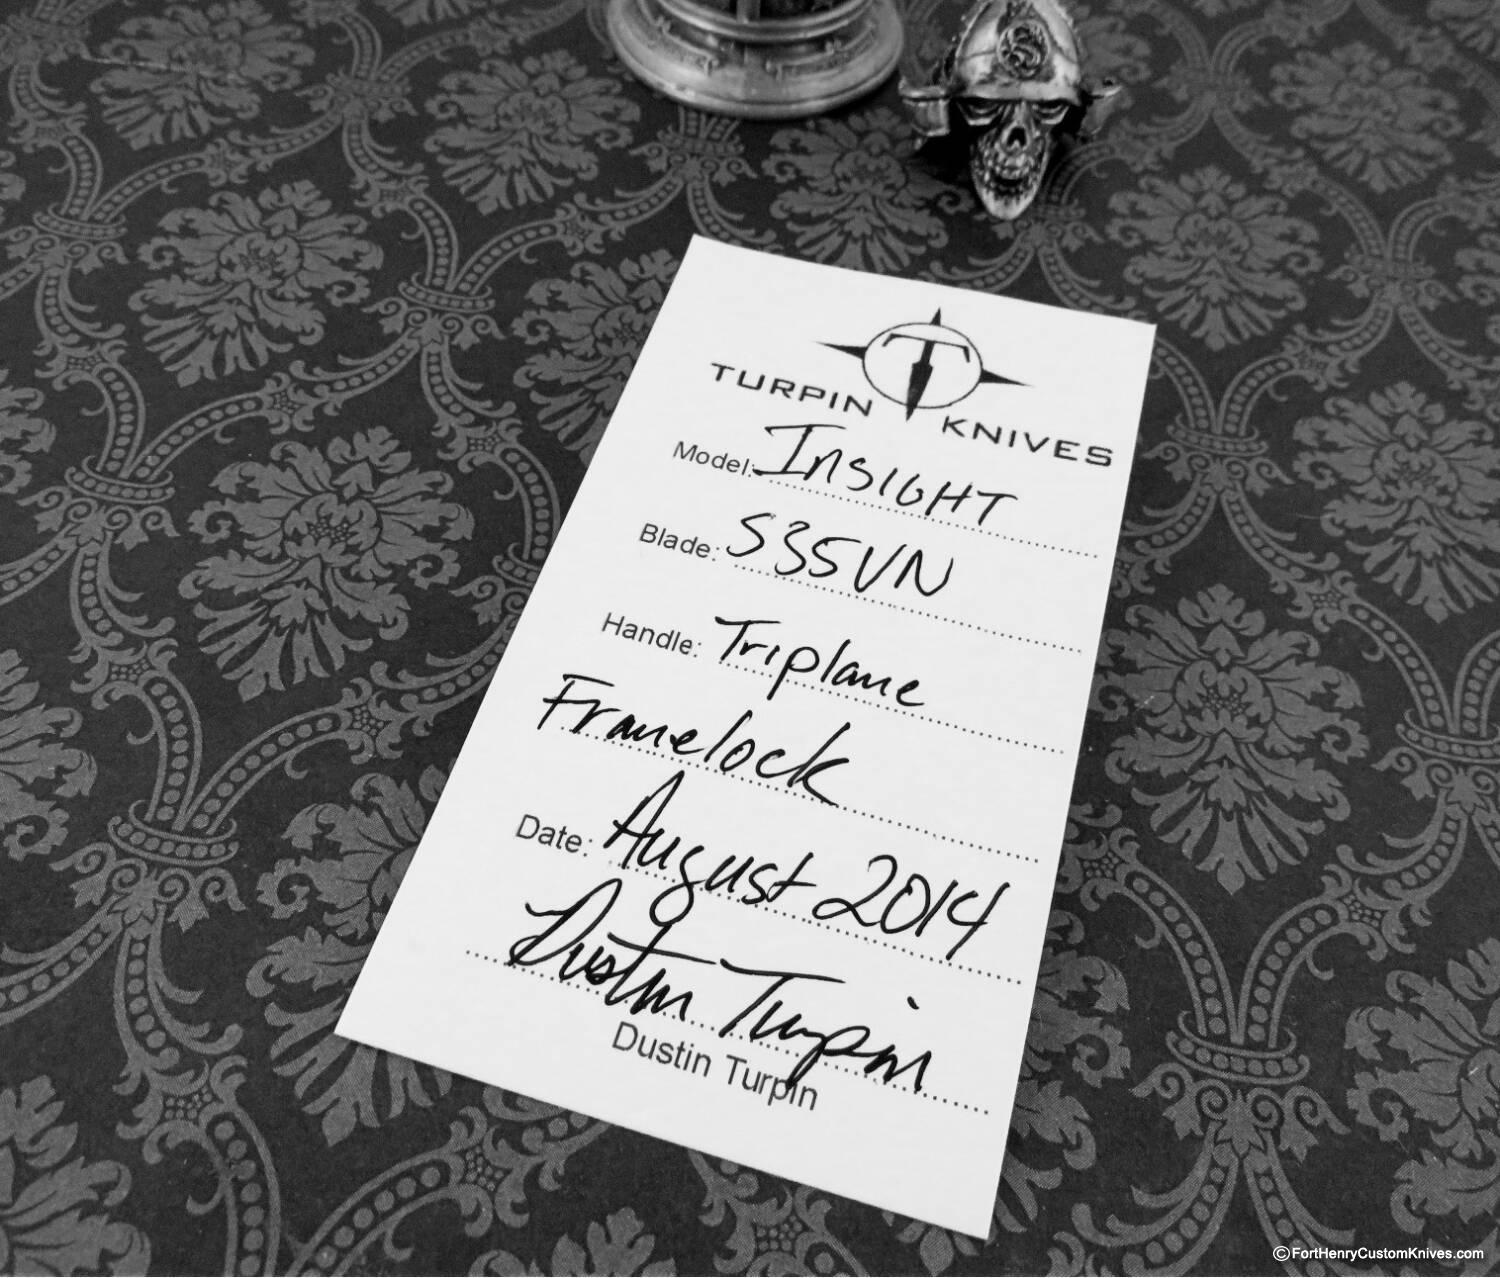 TURPIN T KNIVES
Model: INSIGHT
Blade: S35VN
Handle: Triplane
Framelock
Date: August 2014
Dustin Turpin
Dustin Turpin
©FortHenryCustomKnives.com